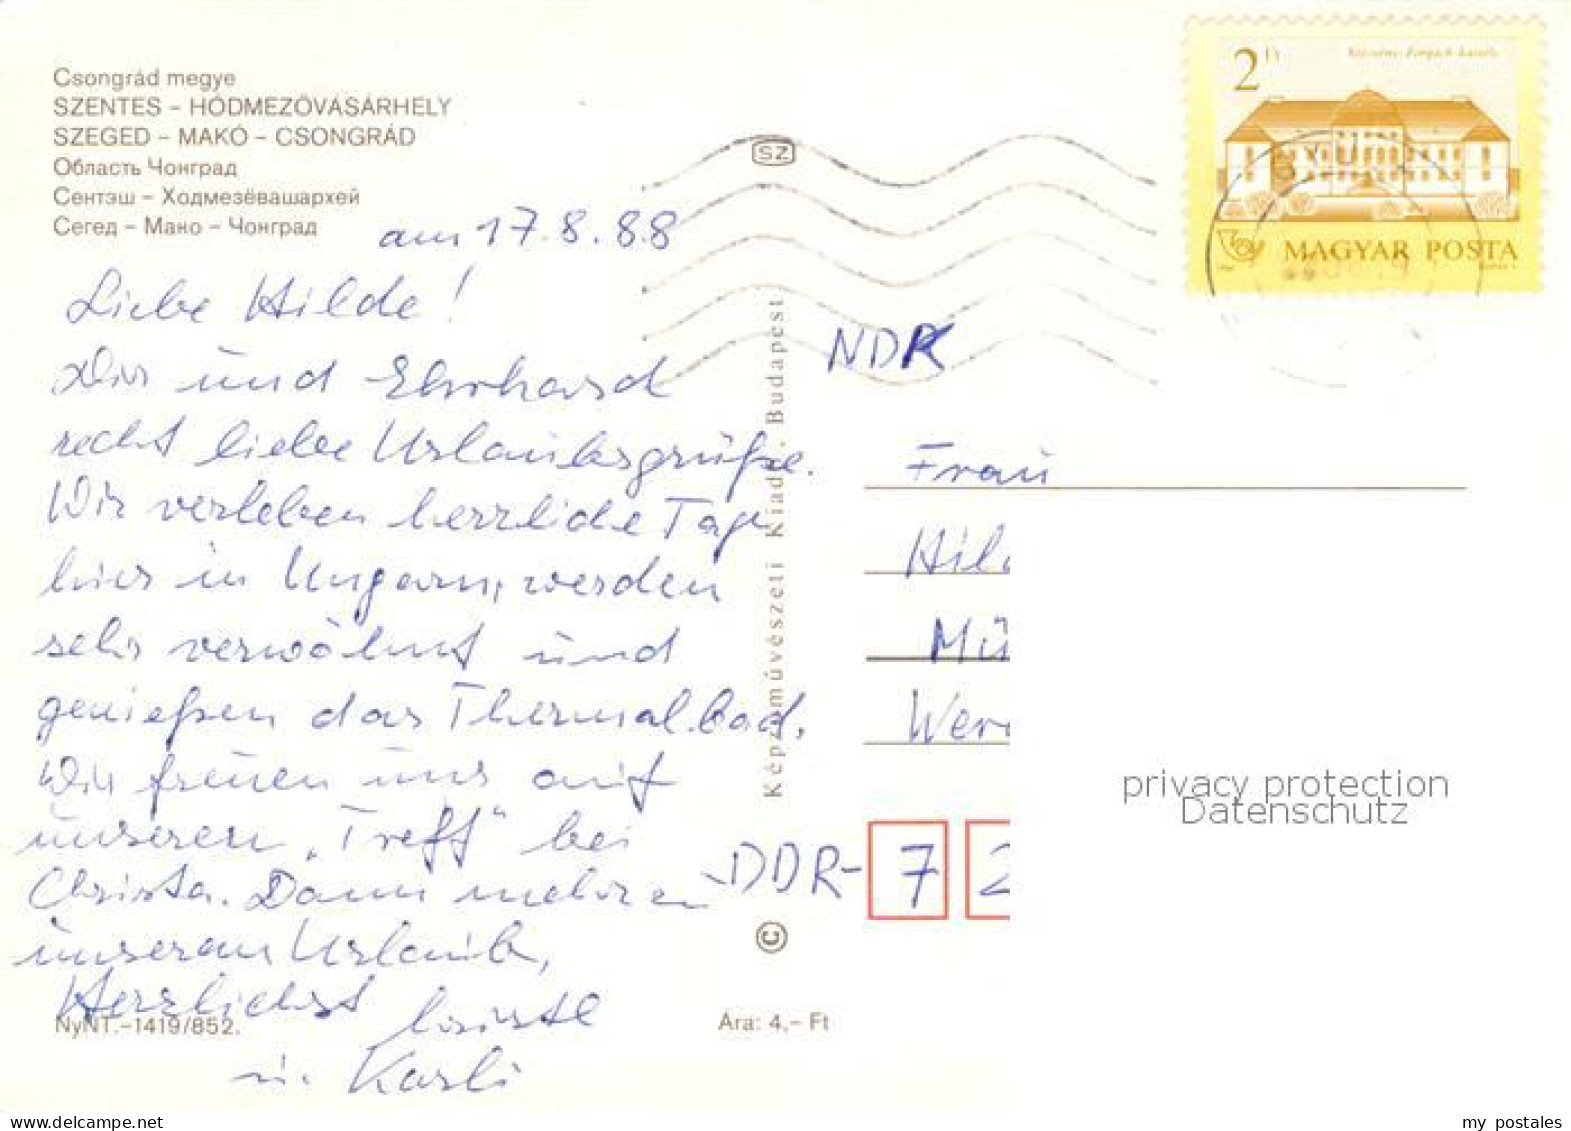 Csongrád megye
SZENTES – HÓDMEZŐVÁSÁRHELY
SZEGED – MAKÓ – CSONGRÁD
Область Чонград
Сентэш – Ходмезёвашархей
Сегед – Мако – Чонград
am 17.8.88
Liebe Hilde!
Dir und Ehrhard
recht liebe Urlaubsgrüße.
Wir verleben herrliche Tage
hier in Ungarn, werden
sehr verwöhnt und
genießen das Thermalbad.
Wir freuen uns auf
unseren „Treff“ bei
Christa. Dann mehr
unseren Urlaub,
Herzlichst
u. Karli
NyNT.–1419/852.
Ára: 4,– Ft
SZ
Képzőművészeti Kiadó, Budapest
©
2 Ft
MAGYAR POSTA
NDK
Frau
Hil
Mü
Wer
DDR- 7 2
privacy protection
Datenschutz
my postales
www.delcampe.net